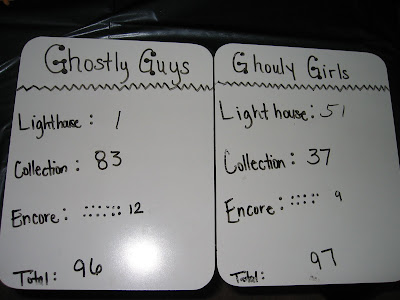 Ghostly Guys
Lighthouse: 1
Collection: 83
Encore: 12
Total: 96
Ghouly Girls
Light house: 51
Collection: 37
Encore: 9
Total: 97